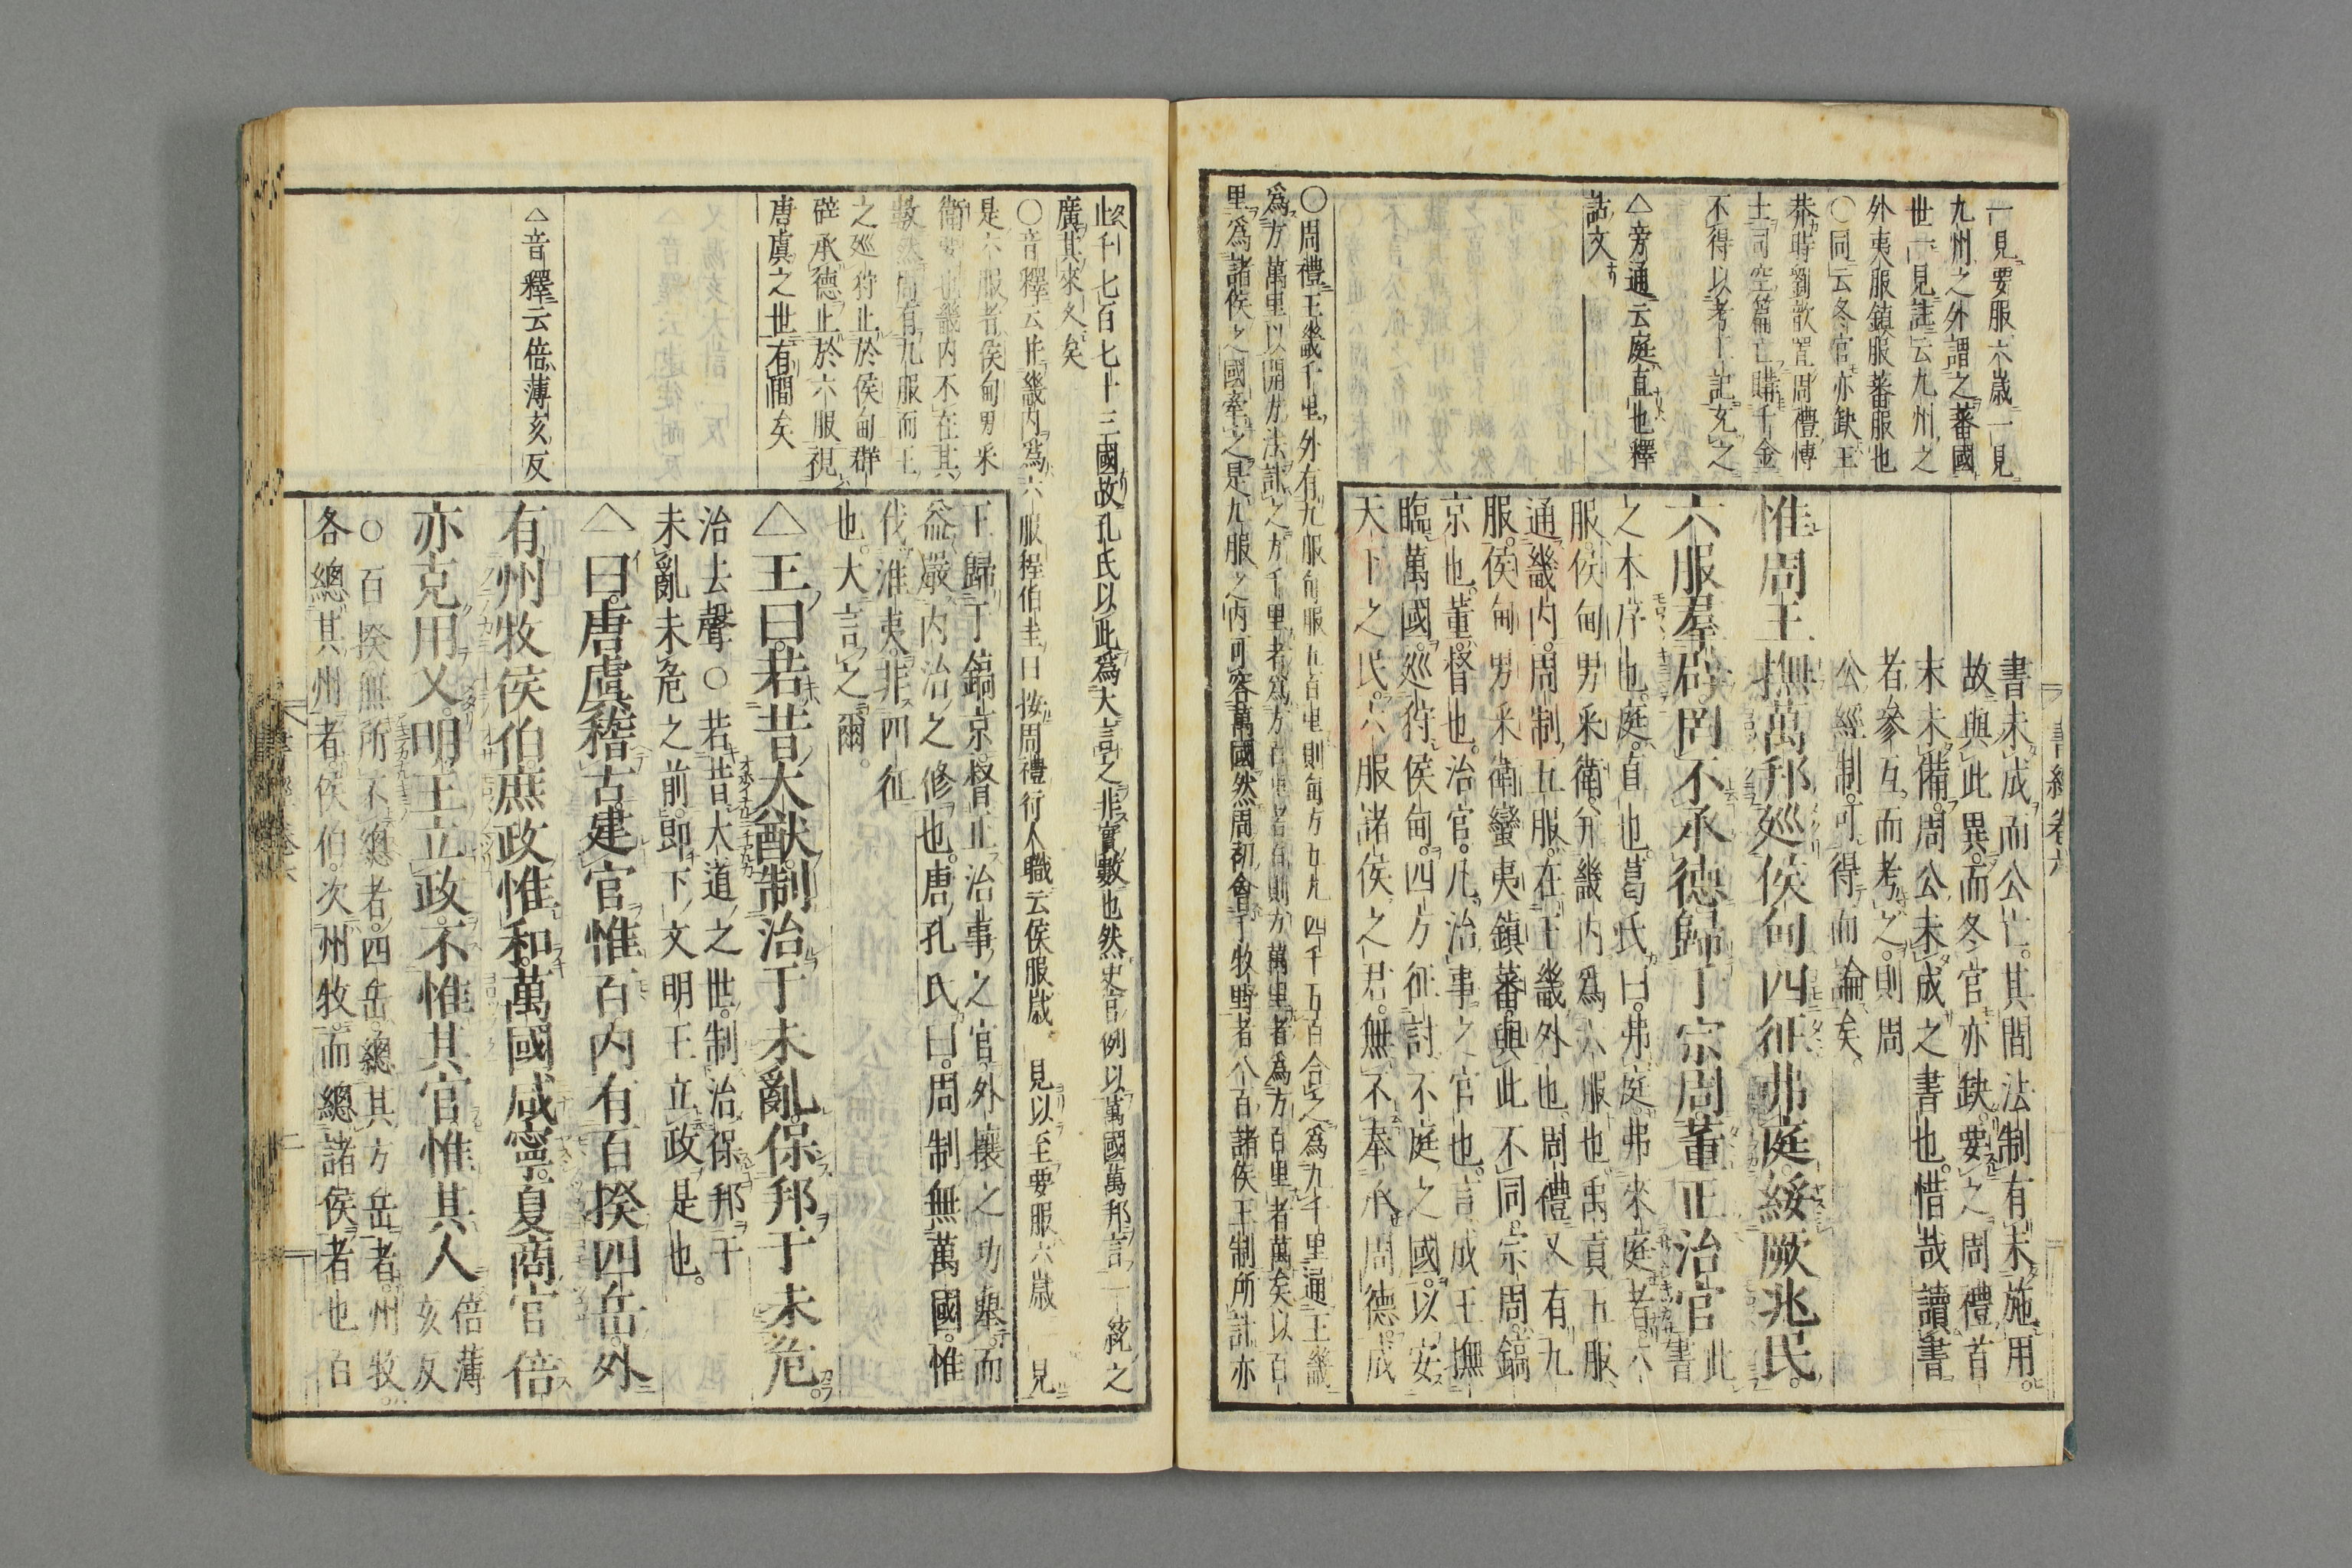 一見要服六歳一見
九州之外謂之蕃國
世一見註云九州之
外夷服鎮服蕃服也
○同云冬官亦缺王
莽時劉歆置周禮博
士司空篇亡購千金
不得以考工記充之
△旁通云庭直也釋
詁文
書未成而公亡其間法制有未施用
故與此異而冬官亦缺要之周禮首
末未備周公未成之書也惜哉讀書
者參互而考之則周
公經制可得而論矣
惟周王撫萬邦廵侯甸四征弗庭綏厥兆民
六服羣辟罔不承德歸于宗周董正治官此書
之本序也庭直也葛氏曰弗庭弗來庭者六
服侯甸男采衛并畿内爲六服也禹貢五服
通畿内周制五服在王畿外也周禮又有九
服侯甸男采衛蠻夷鎮蕃與此不同宗周鎬
京也董督也治官凡治事之官也言成王撫
臨萬國廵狩侯甸四方征討不庭之國以安
天下之民六服諸侯之君無不奉承周德成
○周禮王畿千里外有九服甸服五百里則毎方五九四千五百合之爲九千里通王畿
爲方萬里以開方法計之方千里者爲方百里者百則方萬里者爲方百里者萬矣以百
里爲諸侯之國牽之是九服之内可容萬國然周初會于牧野者八百諸侯王制所計亦
止千七百七十三國故孔氏以此爲大言之非實數也然史官例以萬國萬邦言一統之
廣其來久矣
○音釋云并畿内爲六服程伯圭曰按周禮行人職云侯服歳一見以至要服六歳一見
是六服者侯甸男采
衛要也畿内不在其
數然周有九服而王
之廵狩止於侯甸群
辟承德止於六服視
唐虞之世有間矣
△音釋云倍薄亥反
王歸于鎬京督正治事之官外攘之功舉而
益嚴内治之修也唐孔氏曰周制無萬國惟
伐淮夷非四征
也大言之爾
△王曰若昔大猷制治于未亂保邦于未危
治去聲○若昔大道之世制治保邦于
未亂未危之前即下文明王立政是也
△曰唐虞稽古建官惟百内有百揆四岳外
有州牧侯伯庶政惟和萬國咸寧夏商官倍
亦克用乂明王立政不惟其官惟其人倍薄亥反
○百揆無所不總者四岳總其方岳者州牧
各總其州者侯伯次州牧而總諸侯者也百